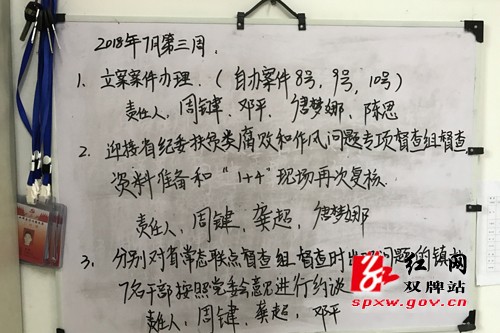 2018年7月第三周
1、立案案件办理.（自办案件8号,9号,10号）
责任人、周键、邓平、唐梦娜、陈思
2、迎接省纪委扶贫类腐败和作风问题专项督查组督查
资料准备和"1+4"现场再次复核.
责任人、周键、龚超、唐梦娜
3、分别对省常态联点督查组督查时出问题的镇
7名干部按照党委会意见进行约谈
责任人、周键、龚超、邓平
红网
双牌站
spxw.gov.cn